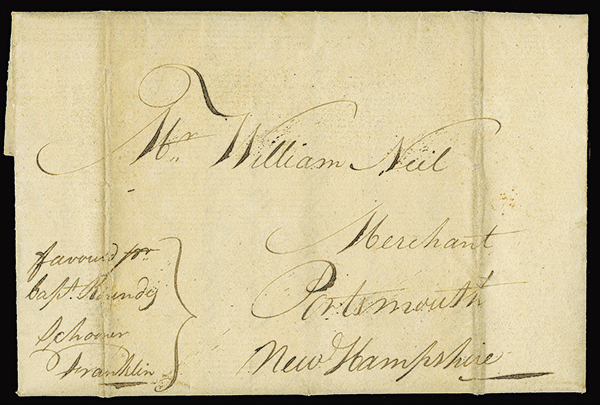 Mr. William Neil
Merchant
Portsmouth
New Hampshire
favourd pr
Capt. Roundy
Schooner
Franklin